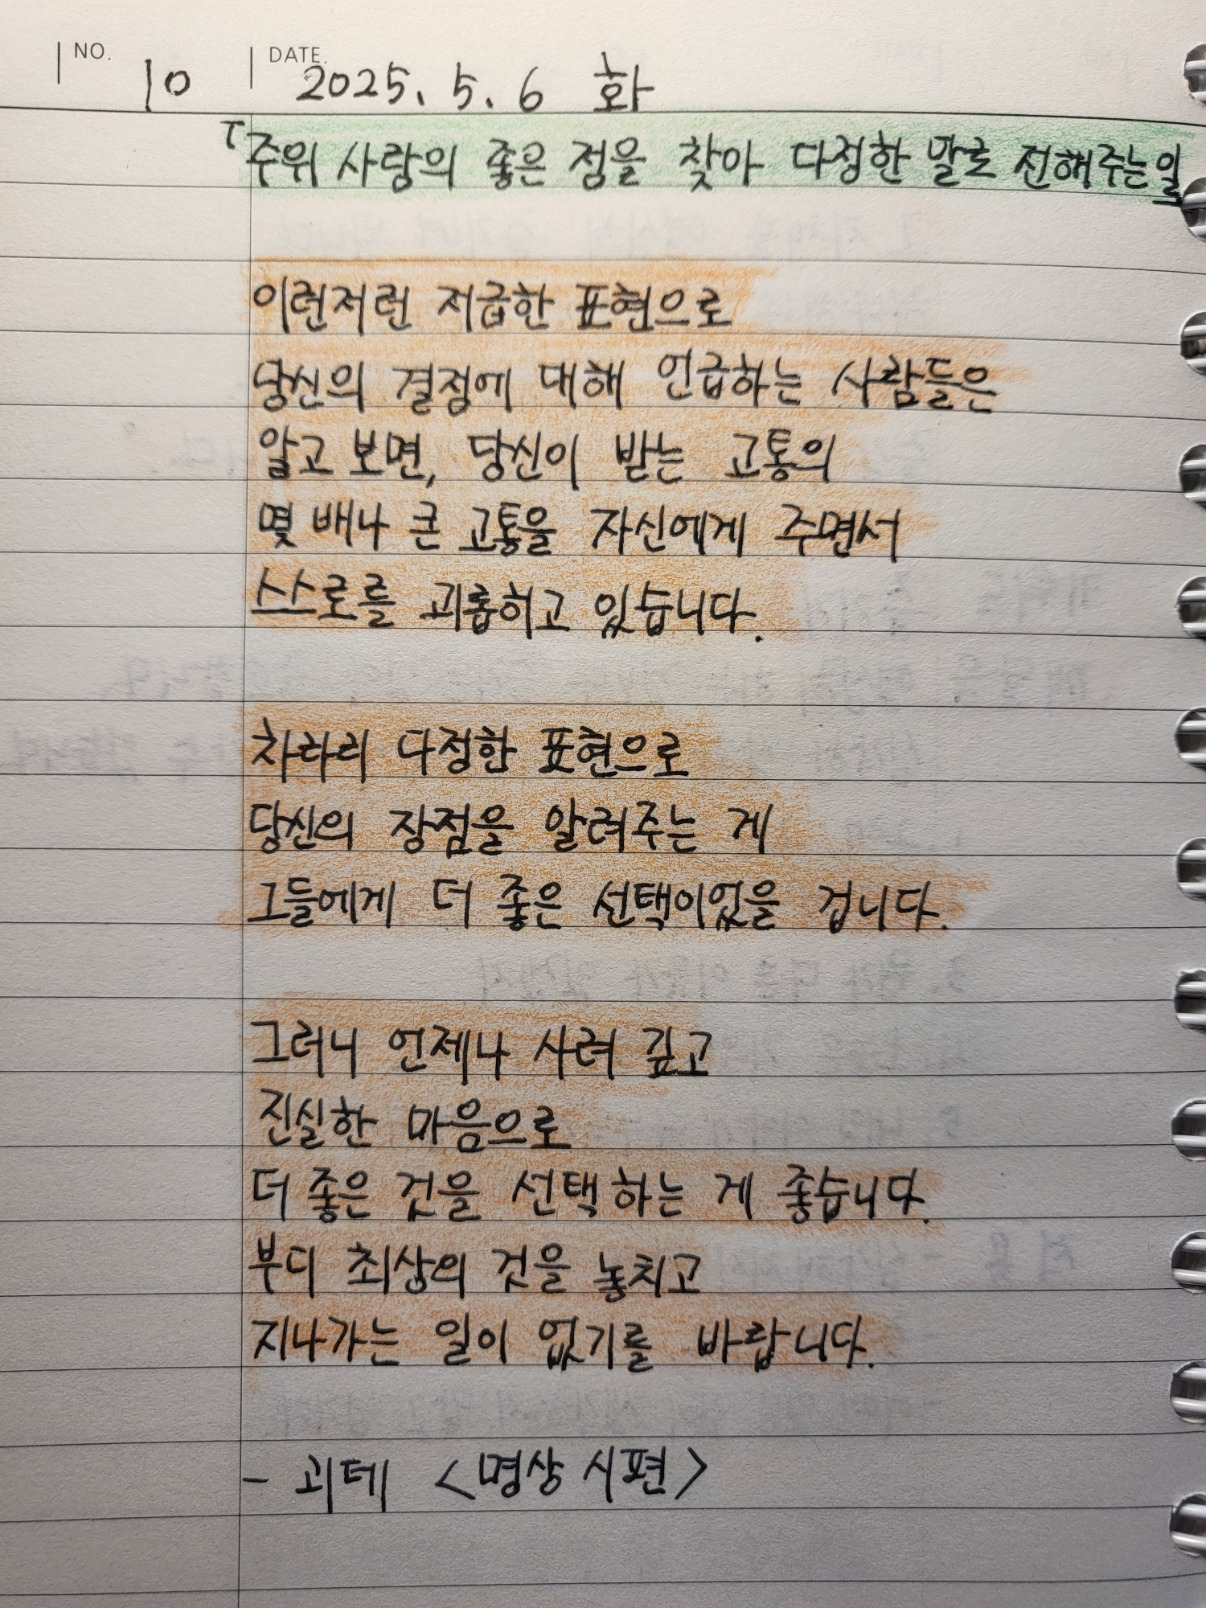 NO. 10 DATE. 2025. 5. 6 화
「주위 사람의 좋은 점을 찾아 다정한 말로 전해주는 일
이런저런 저급한 표현으로
당신의 결정에 대해 언급하는 사람들은
알고 보면, 당신이 받는 고통의
몇 배나 큰 고통을 자신에게 주면서
스스로를 괴롭히고 있습니다.
차라리 다정한 표현으로
당신의 장점을 알려주는 게
그들에게 더 좋은 선택이었을 겁니다.
그러니 언제나 사려 깊고
진실한 마음으로
더 좋은 것을 선택하는 게 좋습니다.
부디 최상의 것을 놓치고
지나가는 일이 없기를 바랍니다.
- 괴테 <명상 시편>